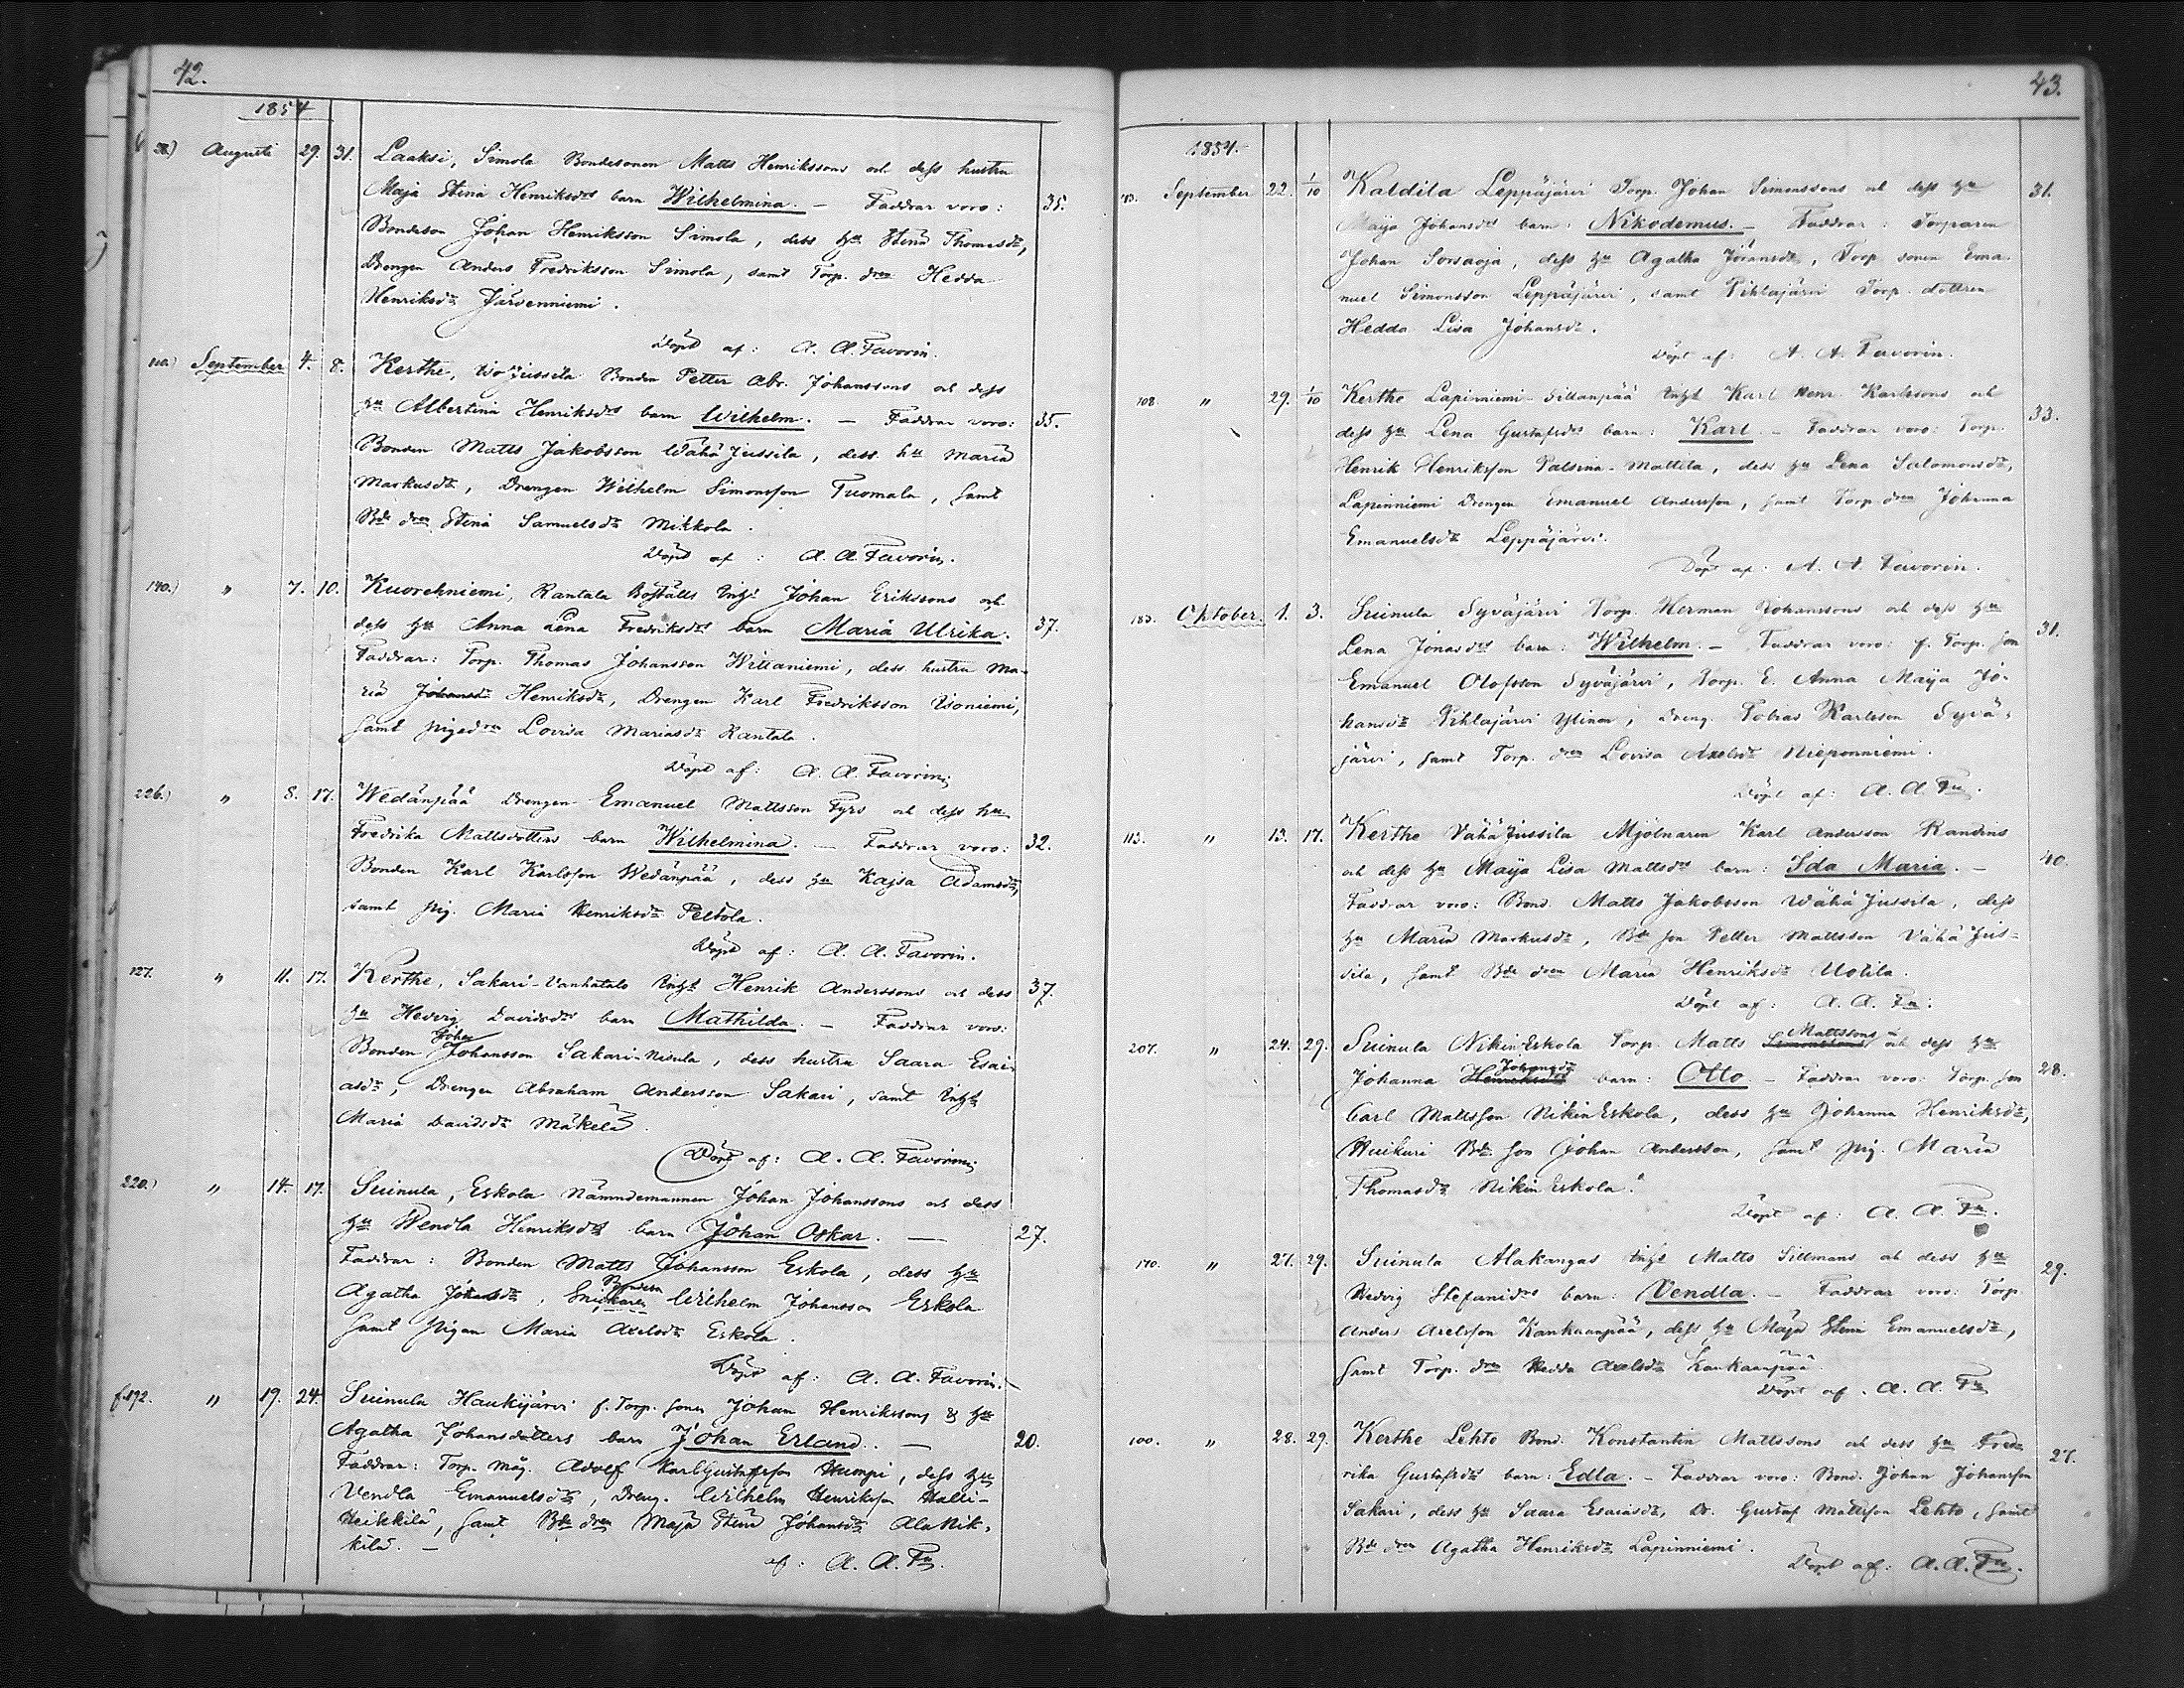 42.
1854
Augusti 29. 31. Laaksi, Simola Bondesonen Matts Henrikssons och dess hustru
Maja Stina Henriksdrs barn Wilhelmina. — Faddrar voro: 35.
Bondeson Johan Henriksson Simola, dess hu Stina Thomasdr,
Drengen Anders Fredriksson Simola, samt Torp. dren Hedda
Henriksdr Järvenniemi.
Döpt af: A. A. Favorin.
September 4. 8. Kerthe, Iso Jussila Bonden Petter Abr. Johanssons och dess
hu Albertina Henriksdrs barn Wilhelm. — Faddrar voro: 35.
Bonden Matts Jakobsson Wähä Jussila, dess hu Maria
Markusdr, Drengen Wilhelm Simonsson Tuomala, samt
Bde dren Stina Samuelsdr Mikkola.
Döpt af: A. A. Favorin.
140.) " 7. 10. Kuorehniemi, Rantala Boställs Inhs Johan Erikssons och
dess hu Anna Lena Fredriksdrs barn Maria Ulrika. 37.
Faddrar: Torp. Thomas Johansson Willaniemi, dess hustru Ma-
ria Johansdr Henriksdr, Drengen Karl Fredriksson Isoniemi,
samt pigedren Lovisa Mariasdr Rantala.
Döpt af: A. A. Favorin
226.) " 8. 17. Wedänpää Drengen Emanuel Mattsson Fyrs och dess hu
Fredrika Mattsdotters barn Wilhelmina. — Faddrar voro: 32.
Bonden Karl Karlsson Wedänpää, dess hu Kajsa Adamsdr,
samt pig. Maria Henriksdr Peltola.
Döpt af: A. A. Favorin.
127. " 11. 17. Kerthe, Sakari-Vanhatalo Inhs Henrik Anderssons och dess 37.
hu Hedvig Davidsdrs barn Mathilda. — Faddrar voro:
Bonden Johan Johansson Sakari-Nisula, dess hustru Saara Esai-
asdr, Drengen Abraham Andersson Sakari, samt Inhs
Maria Davidsdr Mäkelä
Döpt af: A. A. Favorin
220.) " 14. 17. Suinula, Eskola Nämndemannen Johan Johanssons och dess
hu Wendla Henriksdrs barn Johan Oskar. — 27.
Faddrar: Bonden Matts Johansson Eskola, dess hu
Agatha Johansdr, Snickaren Bonden Wilhelm Johansson Eskola
samt pigan Maria Axelsdr Eskola.
Döpt af: A. A. Favorin.
f. 192. " 19. 24. Suinula Haukijärvi f. Torp. sonen Johan Henrikssons & hu
Agatha Johansdotters barn Johan Erland. — 20.
Faddrar: Torp. måg. Adolf Karl Gustafsson Humpi, dess hu
Vendla Emanuelsdr, Dreng. Wilhelm Henriksson Halli-
Heikkilä, samt Bde dren Maja Stina Johansdr Ala Nik-
kilä. —
af: A. A. Fn
43.
1854.
September 22. 1/10 Kaldila Leppäjärvi Torp. Johan Simonssons och dess hu 31.
Maija Johansdrs barn: Nikodemus. — Faddrar: Torparen
Johan Sorsaoja, dess hu Agatha Jöransdr, Torp sonen Ema-
nuel Simonsson Leppäjärvi, samt Pihlajärvi Torp. dottren
Hedda Lisa Johansdr.
Döpt af: A. A. Favorin.
108. " 29. 1/10 Kerthe Lapinniemi-Sillanpää Inhs Karl Henr. Karlssons och
dess hu Lena Gustafsdrs barn: Karl. — Faddrar voro: Torp. 33.
Henrik Henriksson Palsina-Mattila, dess hu Lena Salomonsdr,
Lapinniemi Drengen Emanuel Andersson, samt Torp dren Johanna
Emanuelsdr Leppäjärvi.
Döpt af: A. A. Favorin.
183. Oktober. 1. 3. Suinula Syväjärvi Torp. Herman Johanssons och dess hu
Lena Jonasdrs barn: Wilhelm. — Faddrar voro: f. Torp. son 31.
Emanuel Olofsson Syväjärvi, Torp. E. Anna Maija Jo-
hansdr Pihlajärvi Ylinen, Dreng. Tobias Karlsson Syvä-
järvi, samt Torp. dren Lovisa Axelsdr Nieponniemi.
Döpt af: A. A. Fn.
113. " 13. 17. Kerthe Vähä Jussila Mjölnaren Karl Andersson Randins
och dess hu Maija Lisa Mattsdrs barn: Ida Maria. — 40.
Faddrar voro: Bond. Matts Jakobsson Wähä Jussila, dess
hu Maria Markusdr, Bde son Petter Mattsson Vähä Jus-
sila, samt Bde dren Maria Henriksdr Uotila.
Döpt af: A. A. Fn:
207. " 24. 29. Suinula Nikin Eskola Torp. Matts Simonssons Mattssons och dess hu
Johanna Henriksdrs Johansdrs barn: Otto. — Faddrar voro: Torp. son 28.
Carl Mattsson Nikin Eskola, dess hu Johanna Henriksdr,
Huikuri Bde son Johan Andersson, samt pig. Maria
Thomasdr Nikin Eskola.
Döpt af: A. A. Fn.
170. " 27. 29. Suinula Alakangas Inhs Matts Sillmans och dess hu 29.
Hedvig Stefanidrs barn: Vendla. — Faddrar voro: Torp
Anders Axelsson Kankaanpää, dess hu Maja Stina Emanuelsdr,
samt Torp. dren Hedda Axelsdr Kankaanpää
Döpt af. A. A. Fn
100. " 28. 29. Kerthe Lehto Bond. Konstantin Mattssons och dess hu Fred-
rika Gustafsdrs barn: Edla. — Faddrar voro: Bond. Johan Johansson 27.
Sakari, dess hu Saara Esaiasdr, Dr. Gustaf Mattsson Lehto, samt
Bde dren Agatha Henriksdr Lapinniemi.
Döpt af: A. A. Fn.